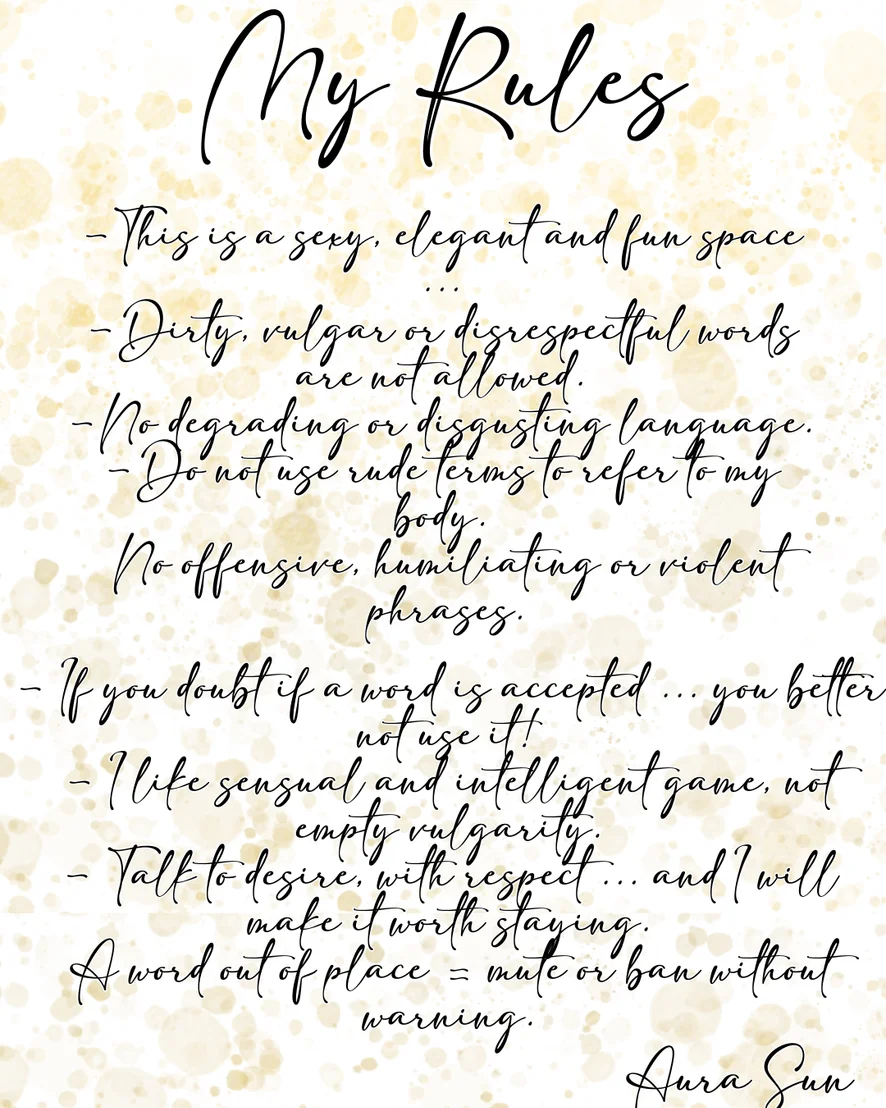 My Rules
- This is a sexy, elegant and fun space
...
- Dirty, vulgar or disrespectful words
are not allowed.
- No degrading or disgusting language.
- Do not use rude terms to refer to my
body.
No offensive, humiliating or violent
phrases.
- If you doubt if a word is accepted ... you better
not use it!
- I like sensual and intelligent game, not
empty vulgarity.
- Talk to desire, with respect ... and I will
make it worth staying.
A word out of place = mute or ban without
warning.
Aura Sun